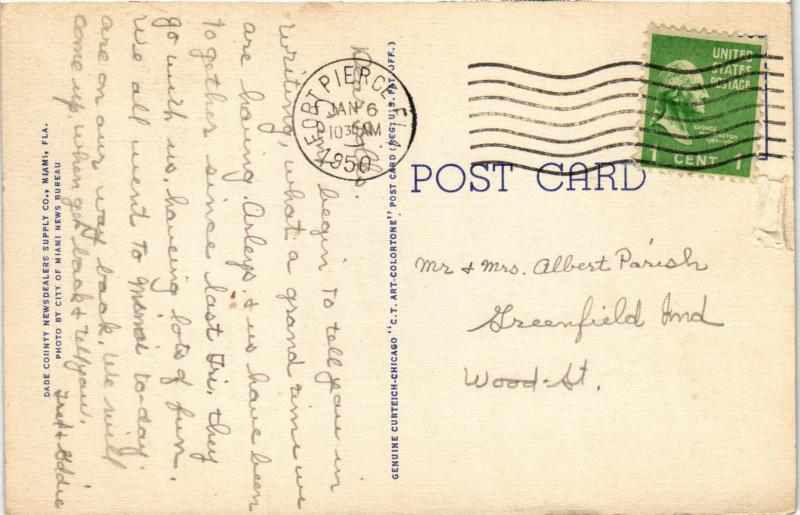 Dear Folks:
Can't begin to tell you in
writing, what a grand time we
are having. Arleys & us have been
together since last Fri, they
go with us, having lots of fun.
We all went to Miami to-day.
are on our way back. We will
come up when get back & tell you.
Fred & Goldie
DADE COUNTY NEWSDEALERS SUPPLY CO., MIAMI, FLA.
PHOTO BY CITY OF MIAMI NEWS BUREAU
GENUINE CURTEICH-CHICAGO "C.T. ART-COLORTONE" POST CARD (REG. U.S. PAT. OFF.)
FORT PIERCE, FLA.
JAN 6
1030 AM
1950
UNITED
STATES
POSTAGE
GEORGE
WASHINGTON
1 CENT 1
POST CARD
Mr & Mrs. Albert Parish
Greenfield Ind
Wood-St.